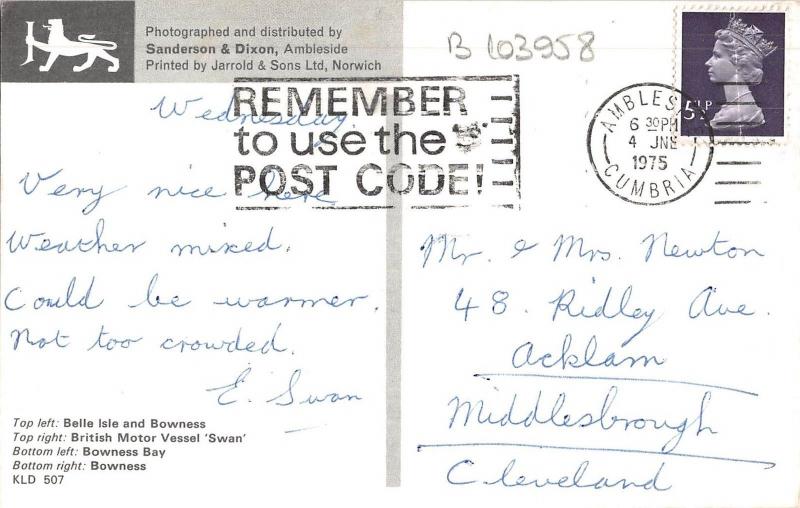 Photographed and distributed by
Sanderson & Dixon, Ambleside
Printed by Jarrold & Sons Ltd, Norwich
B 103958
5½P
REMEMBER
to use the
POST CODE!
AMBLESIDE
6 30PM
4 JNE
1975
CUMBRIA
Wednesday.
Very nice here
Weather mixed.
Could be warmer.
Not too crowded.
E. Swan
Mr. & Mrs. Newton
48. Ridley Ave.
Acklam
Middlesbrough
Cleveland
Top left: Belle Isle and Bowness
Top right: British Motor Vessel 'Swan'
Bottom left: Bowness Bay
Bottom right: Bowness
KLD 507